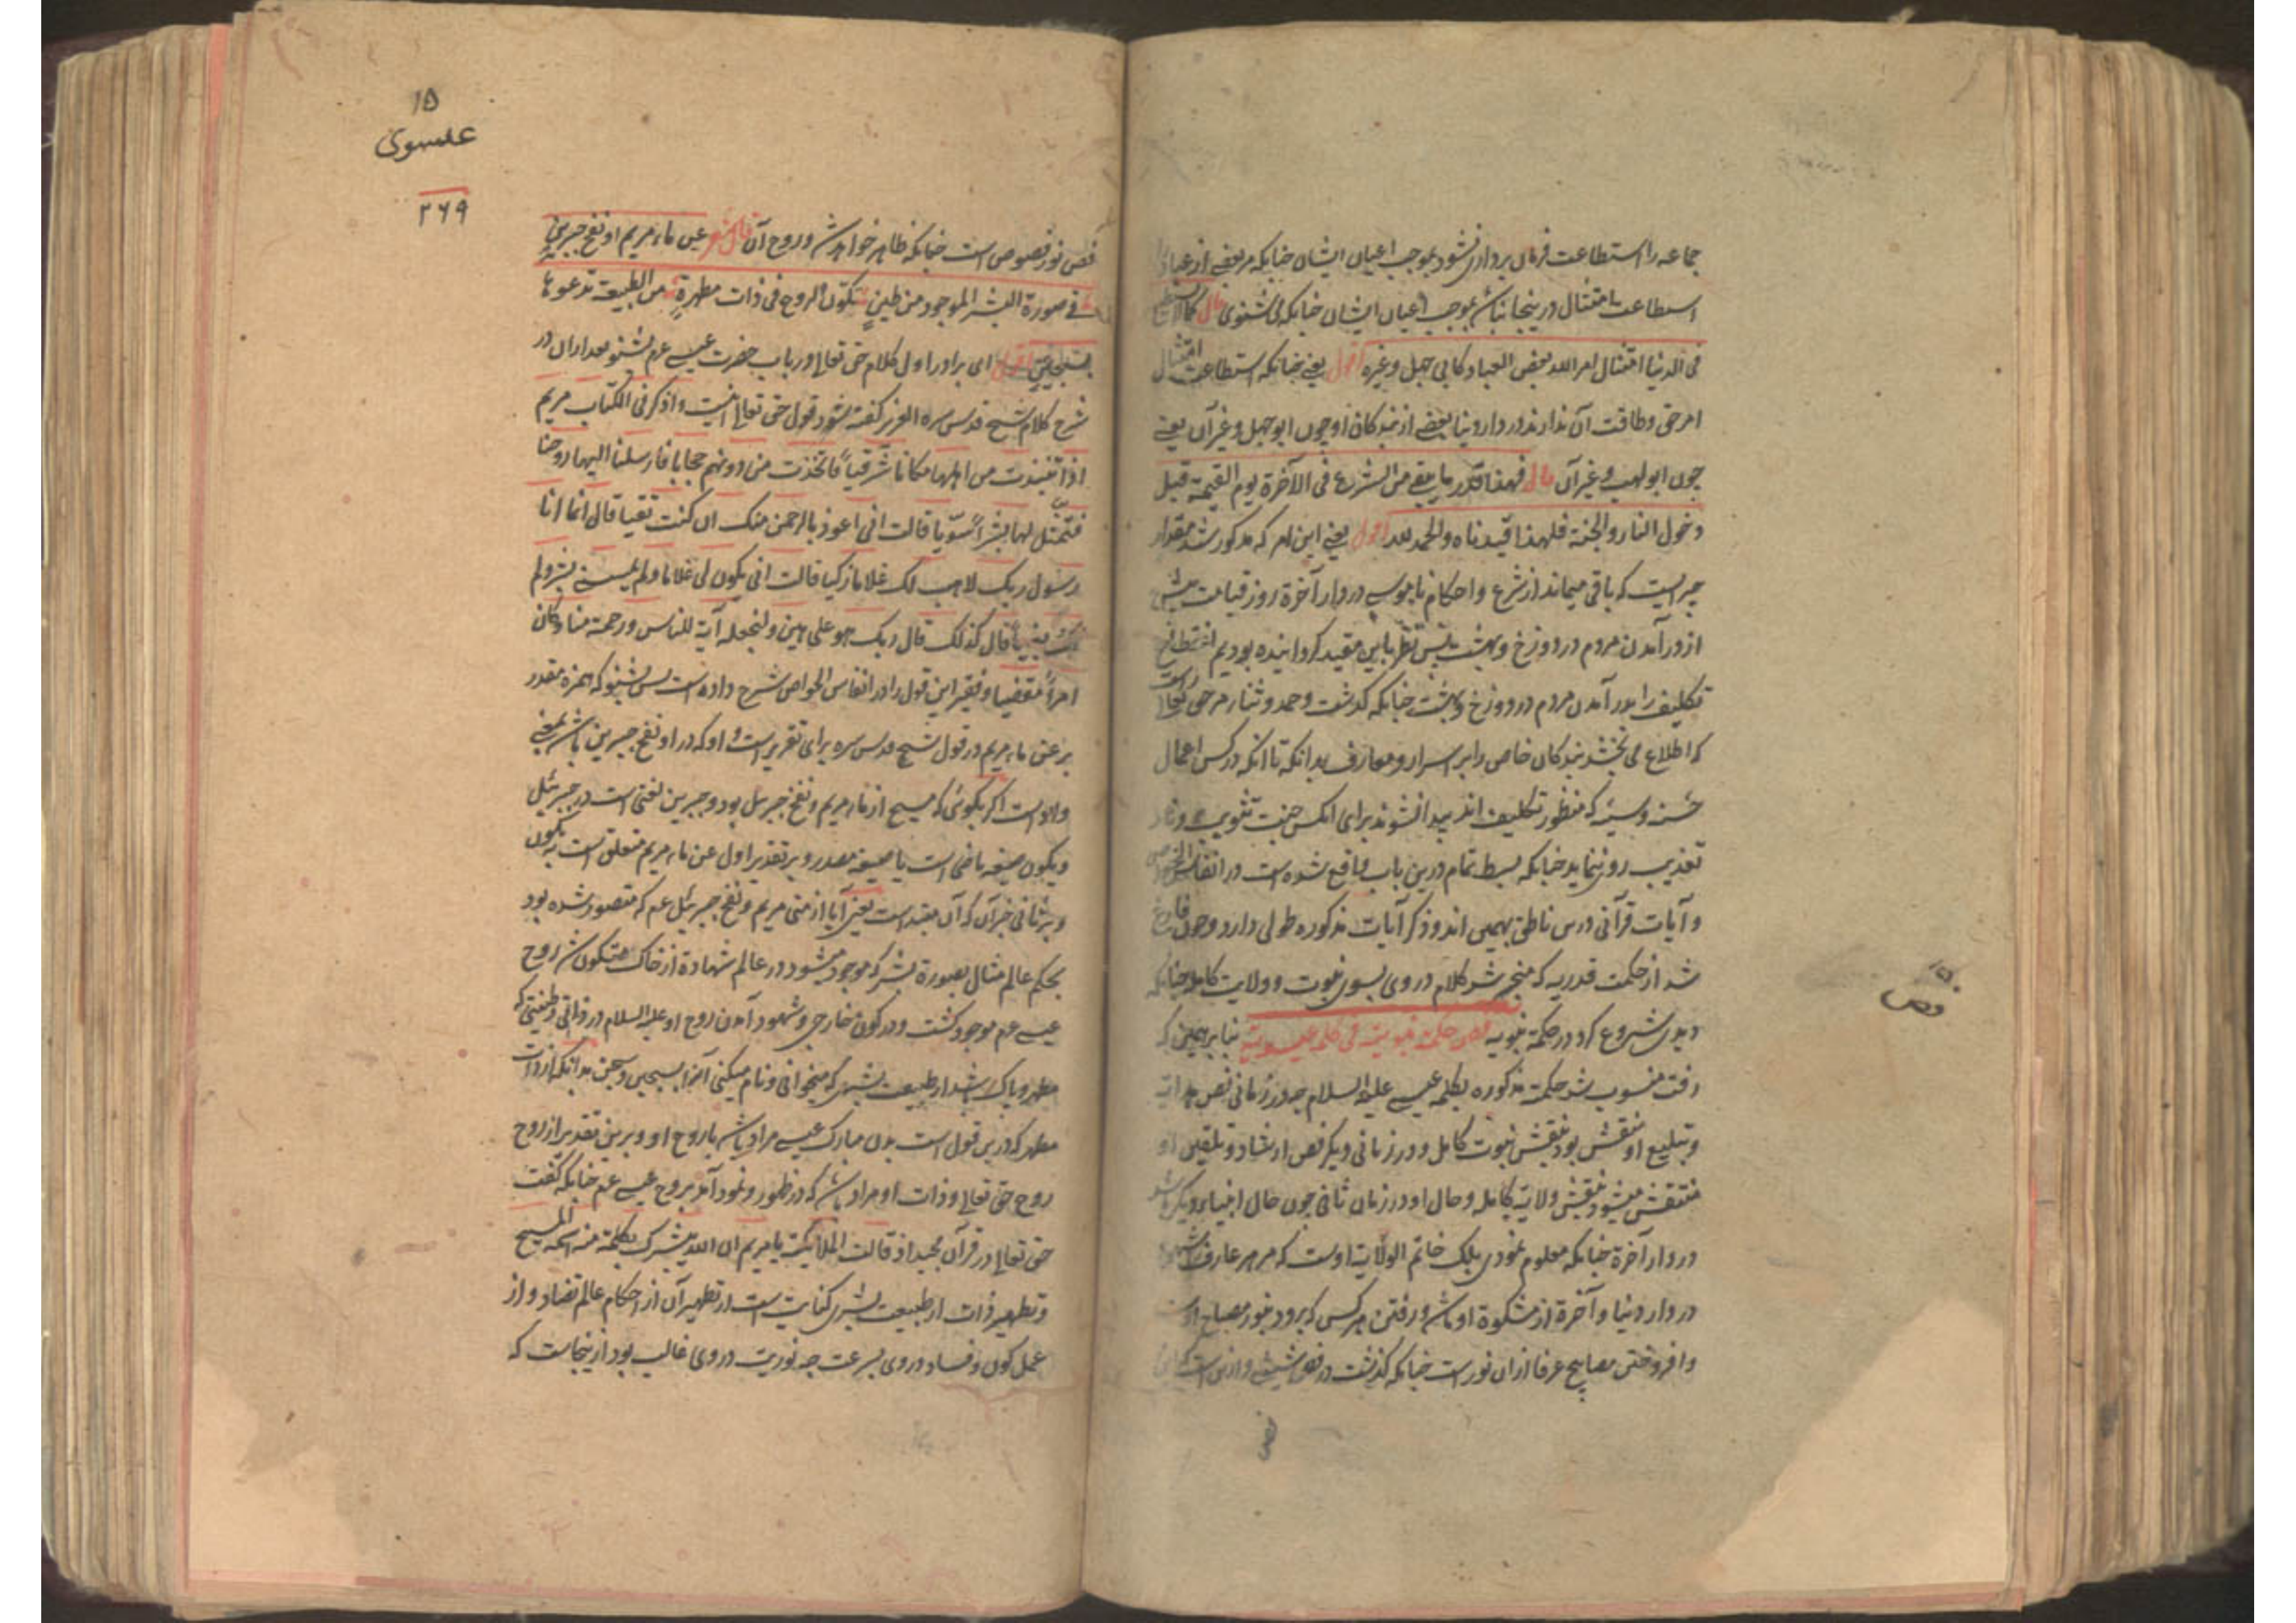 جماعه را استطاعت فرمان برداری نشود بموجب اعیان ایشان چنانکه مر بعضی از عباد را
استطاعت امتثال در ینجا نباشد بموجب اعیان ایشان چنانکه می شنوی قال کما لا یستطیع
فی الدنیا امتثال امر الله بعض العباد کابی جهل و غیره اقول یعنی چنانکه استطاعت امتثال
امر حق و طاقت آن ندارند در دار دنیا بعضی از بندکان او چون ابو جهل و غیر آن یعنی
چون ابو لهب و غیر آن قال فهذا قدر ما یبقی من الشرع فی الآخرة یوم القیمة قبل
دخول النار والجنة فلهذا قیدناه والحمد لله اقول یعنی این امر که مذکور شد مقدار
چیزیست که باقی میماند از شرع و احکام ناموسی در دار آخرة روز قیامت پیش
از در آمدن مردم در دوزخ و بهشت پس نظر باین مقید کردانیده بودیم انقطاع
تکلیف را بدر آمدن مردم در دوزخ و بهشت چنانکه کذشت و حمد و ثنا مر حق تعالی راست
که اطلاع می بخشد بندکان خاص را بر اسرار و معارف بدانکه تا آنکه در کس اعمال
حسنه و سیئه که منظور تکلیف اند پیدا نشوند برای آنکس جنت تثویب و نار
تعذیب رو ننماید چنانکه بسط تمام درین باب واقع شده است در انفاس الخواص
و آیات قرآنی درس ناطق بهمین اند و ذکر آیات مذکوره طولی دارد و چون فارغ
شد از حکمت قدریه که منجر شد کلام در وی بسوی نبوت و ولایت کامله چنانکه
دیدی شروع کرد در حکمة نبویه فص حکمة نبویة فی کلمة عیسویة بنابر همین که
رفت منسوب شد حکمة مذکوره بکلمه عیسی علیه السلام چه در زمانی فص هدایت
و تبلیغ او منقش بود بنقش نبوت کامل و در زمانی دیکر فص ارشاد و تلقین او
منتقش میشود بنقش ولایة کامله و حال او در زمان ثانی چون حال انبیاء دیکر باشد
در دار آخرة چنانکه معلوم نمودی بلک خاتم الولایة اوست که مر هر عارف را شهود
در دار دنیا و آخرة از مشکوة او باشد و رفتن هر کس که برود بنور مصباح اوست
و افروختن مصابیح عرفا ازان نور است چنانکه کذشت در فص شیثی و ازین است که این
فص
فص
فص نور فصوص است چنانکه ظاهر خواهد شد و روح آن قال شعر عن ماء مریم او نفخ جبرین
فی صورة البشر الموجود من طین تکوّن الروح فی ذات مطهرةٍ من الطبیعة تدعوها
بسجین اقول ای برادر اول کلام حق تعالی در باب حضرت عیسی عم بشنو بعد ازان در
شرح کلام شیخ قدس سره العزیز کفته شود قول حق تعالی اینست واذکر فی الکتاب مریم
اذ انتبذت من اهلها مکانا شرقیاً فاتخذت من دونهم حجابا فارسلنا الیها روحنا
فتمثل لها بشراً سویا قالت انی اعوذ بالرحمن منک ان کنت تقیا قال انما انا
رسول ربک لاهب لک غلاما زکیا قالت انی یکون لی غلام ولم یمسسنی بشر ولم
اک بغیاً قال کذلک قال ربک هو علی هین ولنجعله آیة للناس ورحمة منا وکان
امراً مقضیا و فقیر این قول را در انفاس الخواص شرح داده است پس بشنو که همزه مقدر
بر عن ماء مریم در قول شیخ قدس سره برای تقریر است و او که در او نفخ جبرین باشد بمعنی
واو است اکر بکوئی که مسیح از ماء مریم و نفخ جبریل بود و جبرین لغتی است در جبرئیل
و یکون صیغه ماضی است یا صیغه مصدر و بر تقدیر اول عن ماء مریم متعلق است به تکون
و بر ثانی خبر آن که آن مبتداست یعنی آیا از منی مریم و نفخ جبرئیل عم که متصور شده بود
بحکم عالم مثال بصورة بشر که موجود میشود در عالم شهادة از خاک متکون شد روح
عیسی عم موجود کشت و در کون خارجی و شهود آمدن روح او علیه السلام در ذاتی و طینتی که
مطهر و پاک باشد از طبیعت بشری که میخوانی و نام میکنی آنرا بسجین و سجن بدانکه از ذات
مطهر که درین قول است بدن مبارک عیسی مراد باشد یا روح او و برین تقدیر از روح
روح حق تعالی و ذات او مراد باشد که در ظهور و نمود آمد بروح عیسی عم چنانکه کفت
حق تعالی در قرآن مجید اذ قالت الملائکة یا مریم ان الله یبشرک بکلمة منه اسمه المسیح
و تطهیر ذات از طبیعت بشری کنایت است از تطهیر آن از احکام عالم تضاد و از
عمل کون و فساد در وی بسرعت چه نوریت در وی غالب بود ازینجاست که
۱۵
عیسوی
۲۶۹